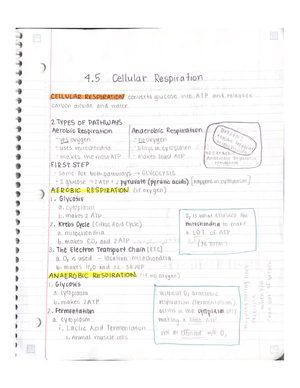 4.5 Cellular Respiration
CELLULAR RESPIRATION converts glucose into ATP and releases
carbon dioxide and water
2 TYPES OF PATHWAYS
Aerobic Respiration
- yes oxygen
- uses mitochondria
- makes the most ATP
Anaerobic Respiration
- no oxygen
- stays in cytoplasm
- makes least ATP
FIRST STEP
- same for both pathways → GLYCOLYSIS
- 1 glucose → 2 ATP + 2 pyruvate (pyruvic acids)
AEROBIC RESPIRATION (if oxygen)
1. Glycosis
a. cytoplasm
b. makes 2 ATP
2. Krebs Cycle (Citric Acid Cycle)
a. mitochondria
b. makes CO2 and 2 ATP
3. The Electron Transport Chain (ETC)
a. O2 is used - location: mitochondria
b. makes H2O and 32-34 ATP
O2 is what allows the
mitochondria to make
a LOT of ATP
ANAEROBIC RESPIRATION (if no oxygen)
1. Glycosis
a. cytoplasm
b. makes 2 ATP
2. Fermentation
a. cytoplasm
i. Lactic Acid Fermentation
1. Animal muscle cells
without O2, anaerobic
respiration (fermentation)
occurs in the cytoplasm
making a little ATP
not as efficient w/o O2